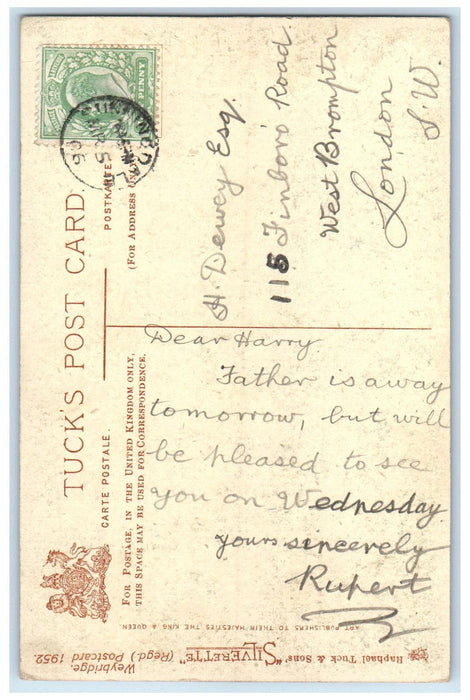 TUCK'S POST CARD.
CARTE POSTALE.
POSTKARTE
(FOR ADDRESS ONLY)
FOR POSTAGE, IN THE UNITED KINGDOM ONLY,
THIS SPACE MAY BE USED FOR CORRESPONDENCE.
PENNY
06
H. Dewey Esq.
115 Finboro' Road
West Brompton
London
S.W.
Dear Harry
Father is away
tomorrow, but will
be pleased to see
you on Wednesday
yours sincerely
Rupert
ART PUBLISHERS TO THEIR MAJESTIES THE KING & QUEEN.
Raphael Tuck & Sons' "SILVERETTE"
(Regd.) Postcard 1952.
Weybridge.